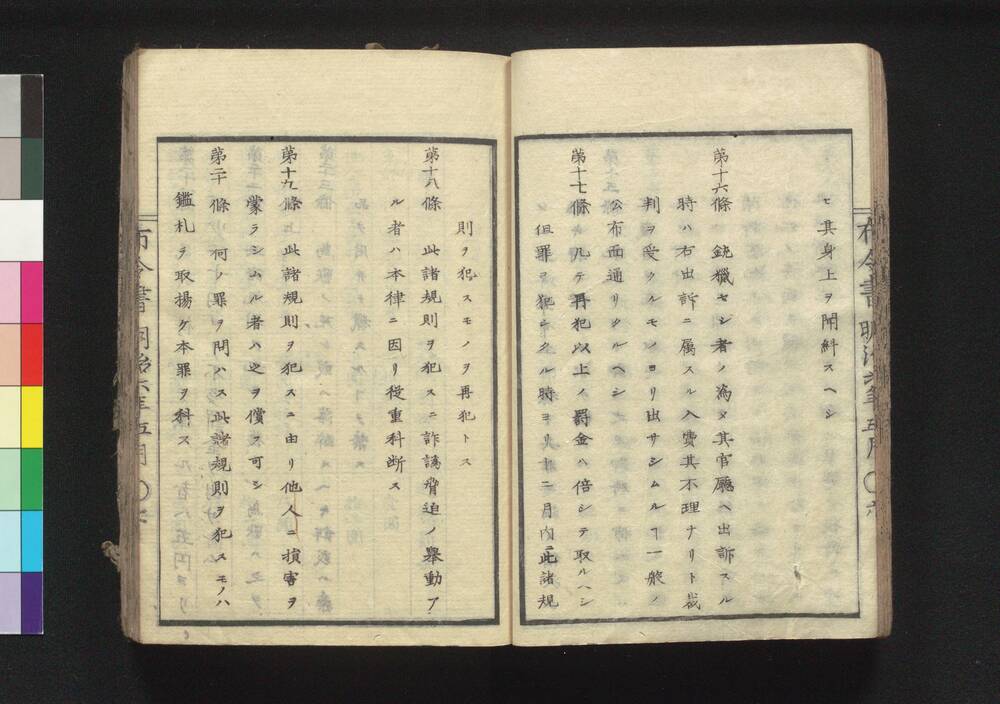 セ其身上ヲ開糾スヘシ
第十六條 銃獵セシ者ノ為メ其官廳ヘ出訴スル
時ハ右出訴ニ属スル入費其不理ナリト裁
判ヲ受クルモノヨリ出サシムルヿ一般ノ
公布面通リタルヘシ
第十七條 凡テ再犯以上ノ罰金ハ倍シテ取ルヘシ
但罪ヲ犯シタル時ヨリ十二月内ニ此諸規
則ヲ犯スモノヲ再犯トス
第十八條 此諸規則ヲ犯スニ詐譌脅迫ノ舉動ア
ル者ハ本律ニ因リ従重科断ス
第十九條 此諸規則ヲ犯スニ由リ他人ニ損害ヲ
蒙ラシムル者ハ之ヲ償フ可シ
第二十條 何ノ罪ヲ問ハス此諸規則ヲ犯スモノハ
鑑札ヲ取揚ケ本罪ヲ科ス
布令書 明治六年五月 〇六
布令書 明治六年五月 〇六